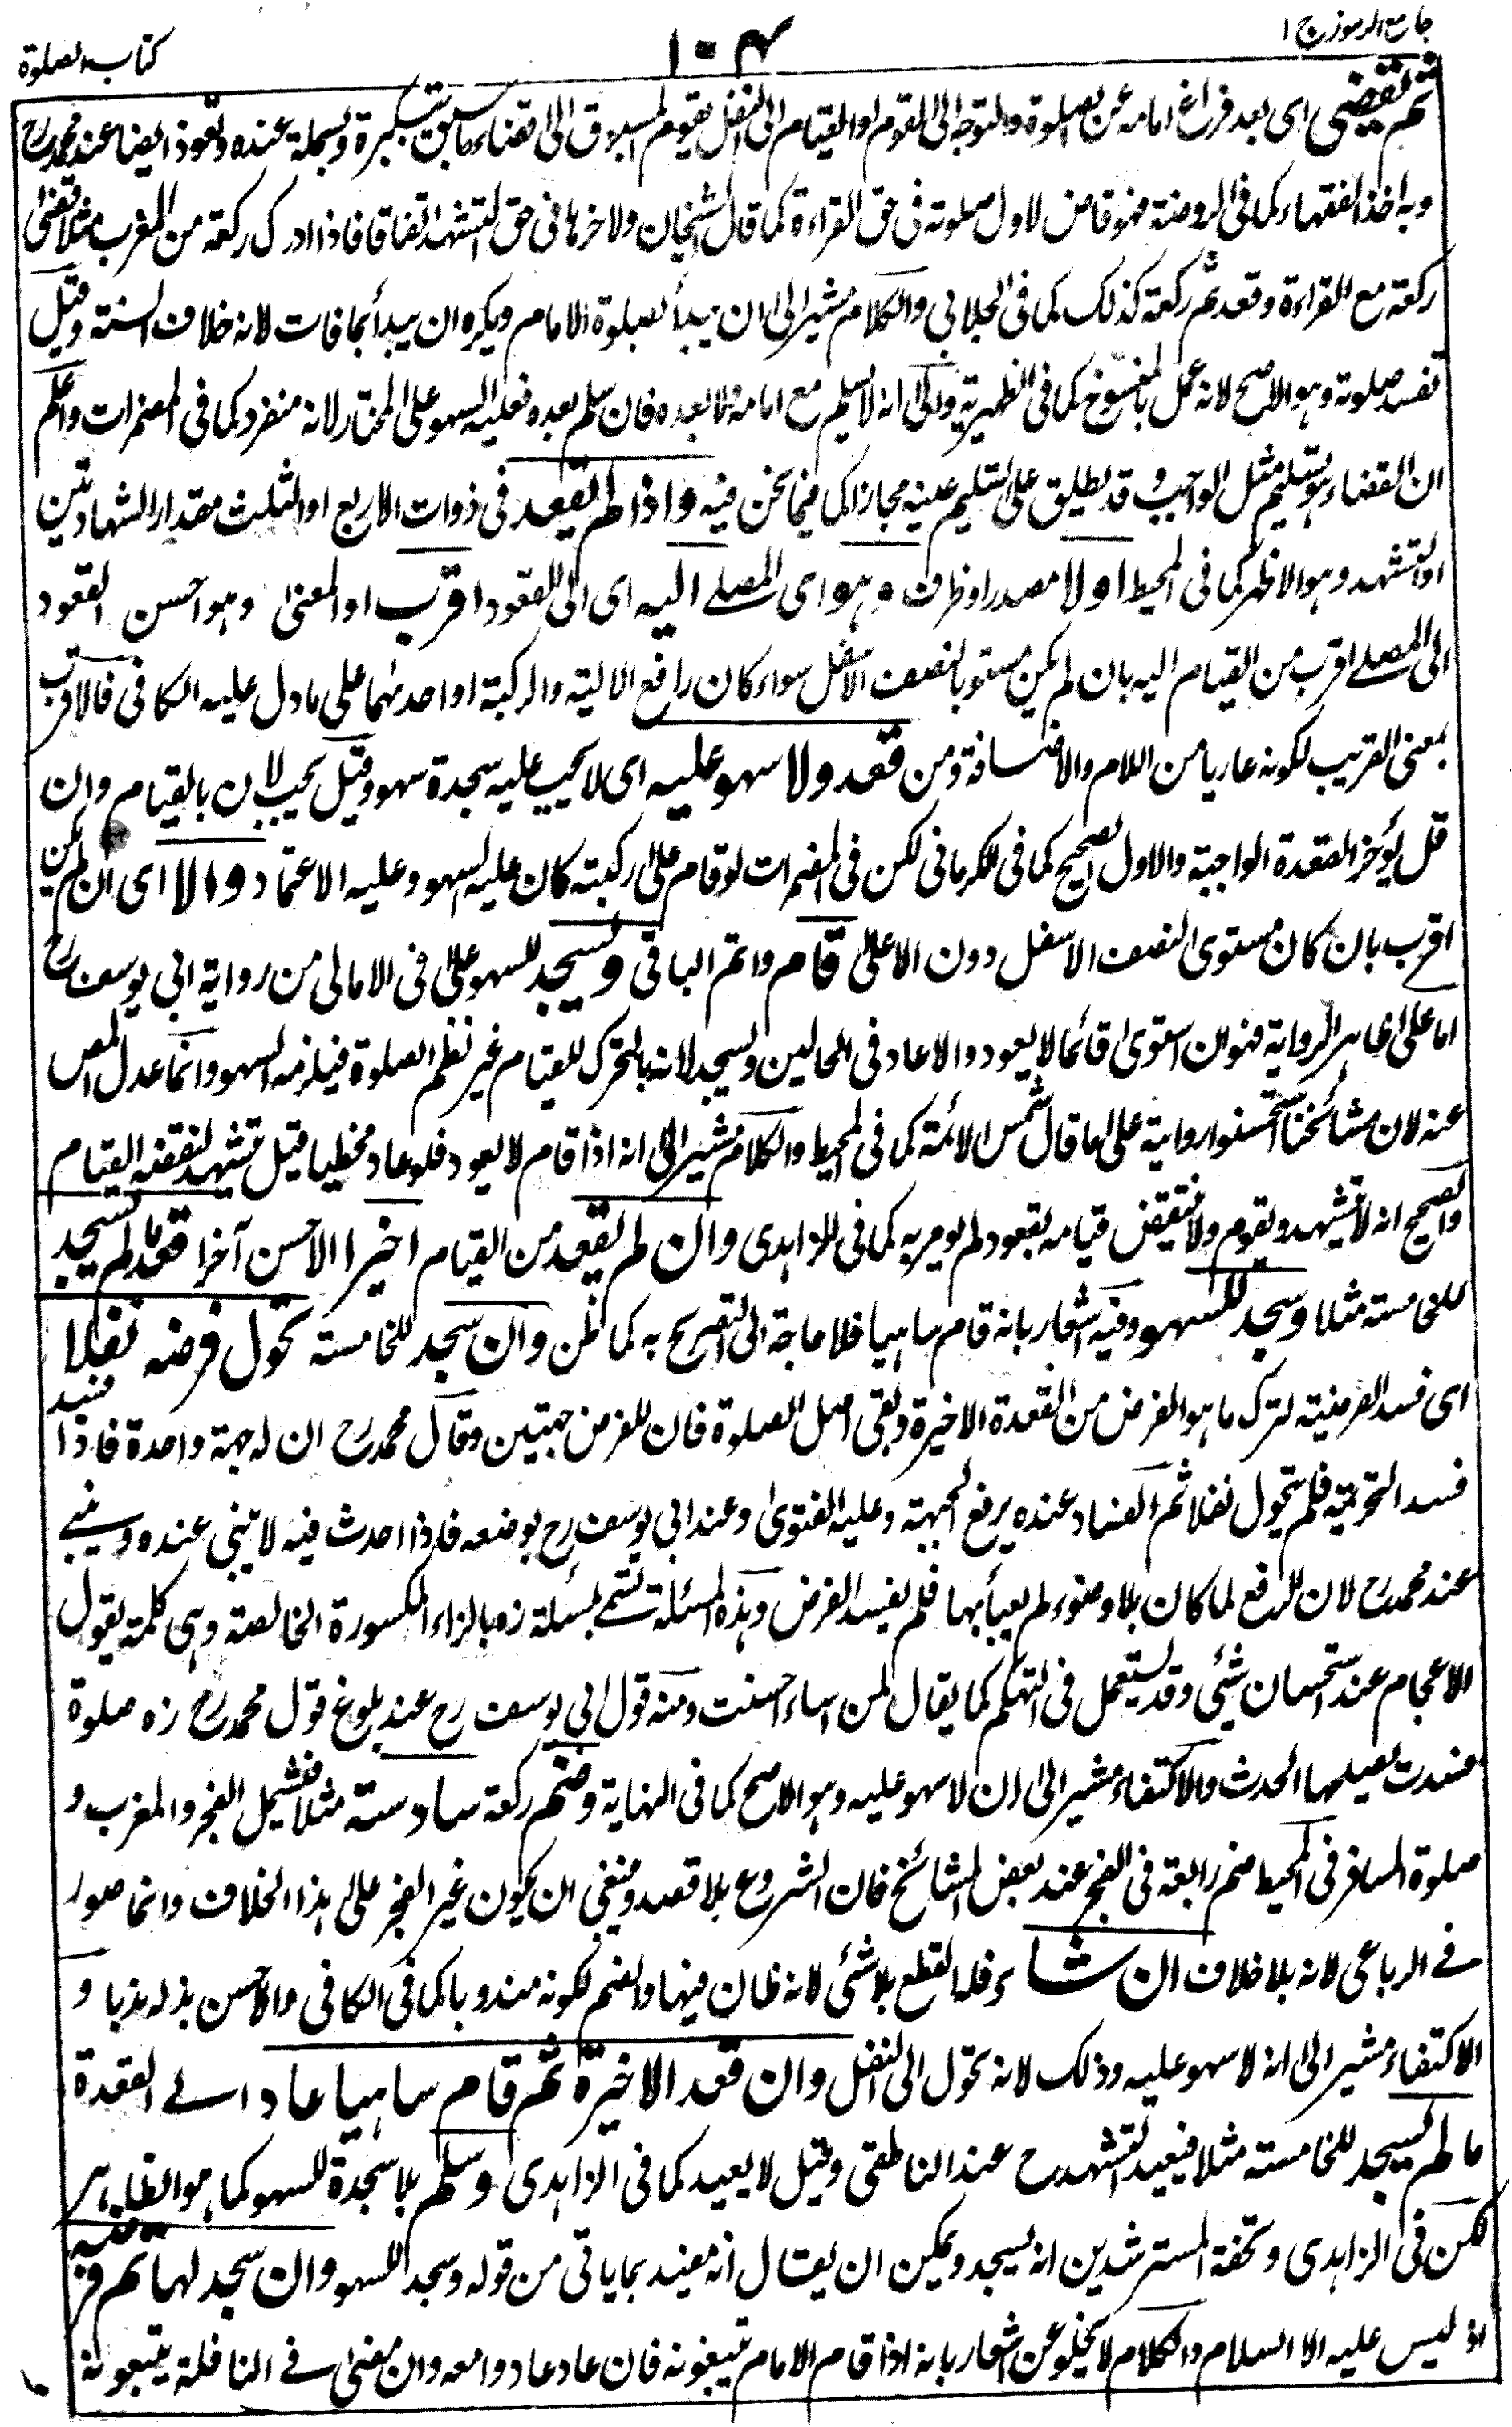 جامع الرموز ج ۱
۱۰۴
كتاب الصلوة
ثم يقضى اى بعد فراغ امامه عن الصلوة والتوجه الى القوم او القيام الى النفل يقوم المسبوق الى قضاء ما سبق بتكبيرة وبسملة عنده وتعوذ ايضا عند محمد رح
وبه اخذ الفقهاء كما فى الروضة فهو قاض لاول صلوته فى حق القراءة كما قال الشيخان ولاخرها فى حق التشهد اتفاقا فاذا ادرك ركعة من المغرب مثلا قضى
ركعة مع القراءة وقعد ثم ركعة كذلك كما فى الجلابى والكلام مشير الى ان يبدأ بصلوة الامام ويكره ان يبدأ بما فات لانه خلاف السنة وقيل
تفسد صلوته وهو الاصح لانه عمل بالمنسوخ كما فى الظهيرية والى انه لا يسلم مع امامه ولا بعده فان سلم بعده فعليه السهو على المختار لانه منفرد كما فى المضمرات واعلم
ان القضاء هو تسليم مثل الواجب وقد يطلق على تسليم عينه مجازا كما فيما نحن فيه واذا لم يقعد فى ذوات الاربع او الثلث مقدار الشهادتين
او التشهد وهو الاظهر كما فى المحيط اولا مصدر او ظرف وهو اى المصلے اليه اى الى القعود اقرب او المعنى وهو احسن القعود
الى المصلے اقرب من القيام اليه بان لم يكن مستويا لنصف الاسفل سواء كان رافع الالية والركبة او احدهما على ما دل عليه الكافى فالاقرب
بمعنى القريب لكونه عاريا من اللام والاضافة ومن قعد ولا سهو عليه اى لا يجب عليه سجدة سهو وقيل يجب لان بالقيام وان
قل يؤخر القعدة الواجبة والاول الصحيح كما فى الكرمانى لكن فى المضمرات لو قام على ركبته كان عليه السهو وعليه الاعتماد والا اى ان لم يكن
اقرب بان كان مستوى النصف الاسفل دون الاعلى قام واتم الباقى وسجد للسهو على فى الامالى من رواية ابى يوسف رح
اما على ظاهر الرواية فهو ان استوى قائما لا يعود والا عاد فى الحالين ويسجد لانه بالتحرك للقيام غير نظم الصلوة فيلزمه السهو وانما عدل المص
عنه لان مشائخنا استحسنوا رواية على ما قال شمس الائمة كما فى المحيط والكلام مشير الى انه اذا قام لا يعود فلو عاد مخطيا قيل تشهد لنقضه القيام
والصحيح انه لا يتشهد ويقوم ولا ينتقض قيامه بقعود لم يومر به كما فى الزاهدى وان لم يقعد من القيام اخيرا الاحسن آخرا قعد ما لم يسجد
للخامسة مثلا وسجد للسهو وفيه اشعار بانه قام ساهيا فلا حاجة الى التصريح به كما ظن وان سجد للخامسة تحول فرضه نفلا
اى فسد الفرضية لترك ما هو الفرض من القعدة الاخيرة وبقى اصل الصلوة فان للفرض جهتين وقال محمد رح ان له جهة واحدة فاذا فسد
فسد التحريمة فلم يتحول نفلا ثم الفساد عنده برفع الجبهة وعليه الفتوى وعند ابى يوسف رح بوضعه فاذا احدث فيه لا يبنى عنده ويبنے
عند محمد رح لان الرفع لما كان بلا وضوء لم يعبأ بها فلم يفسد الفرض وهذه المسئلة تسمى بمسئلة زه بالزاء المكسورة الخالصة وهى كلمة يقول
الاعجام عند استحسان شئى وقد يستعمل فى التهكم كما يقال لمن اساء احسنت ومنه قول ابى يوسف رح عند بلوغ قول محمد رح زه صلوة
فسدت يصلحها الحدث والاكتفاء مشير الى ان لا سهو عليه وهو الاصح كما فى النهاية وضم ركعة سادسة مثلا فيشمل الفجر والمغرب و
صلوة المسافر فى المحيط ضم رابعة فى الفجر عند بعض المشائخ فان الشروع بلا قصد وينبغى ان يكون غير الفجر على هذا الخلاف وانما صور
فے الرباعى لانه بلا خلاف ان شاء فله القطع بلا شئى لانه ظان فيها والضم لكونه مندوبا كما فى الكافى والاحسن بذله ندبا و
الاكتفاء مشير الى انه لا سهو عليه وذلك لانه تحول الى النفل وان قعد الاخيرة ثم قام ساهيا عاد الے القعدة
ما لم يسجد للخامسة مثلا فيعيد التشهد ح عند الناطفى وقيل لا يعيد كما فى الزاهدى وسلم بلا سجدة للسهو كما هو الظاهر
لكن فى الزاهدى وتحفة المسترشدين انه يسجد ويمكن ان يقال انه مقيد بما ياتى من قوله وسجد للسهو وان سجد لها تم فرضه
اذ ليس عليه الا السلام والكلام لا يخلو عن اشعار بانه اذا قام الامام يتبعونه فان عاد عادوا معه وان مضى فے النافلة يتبعونه